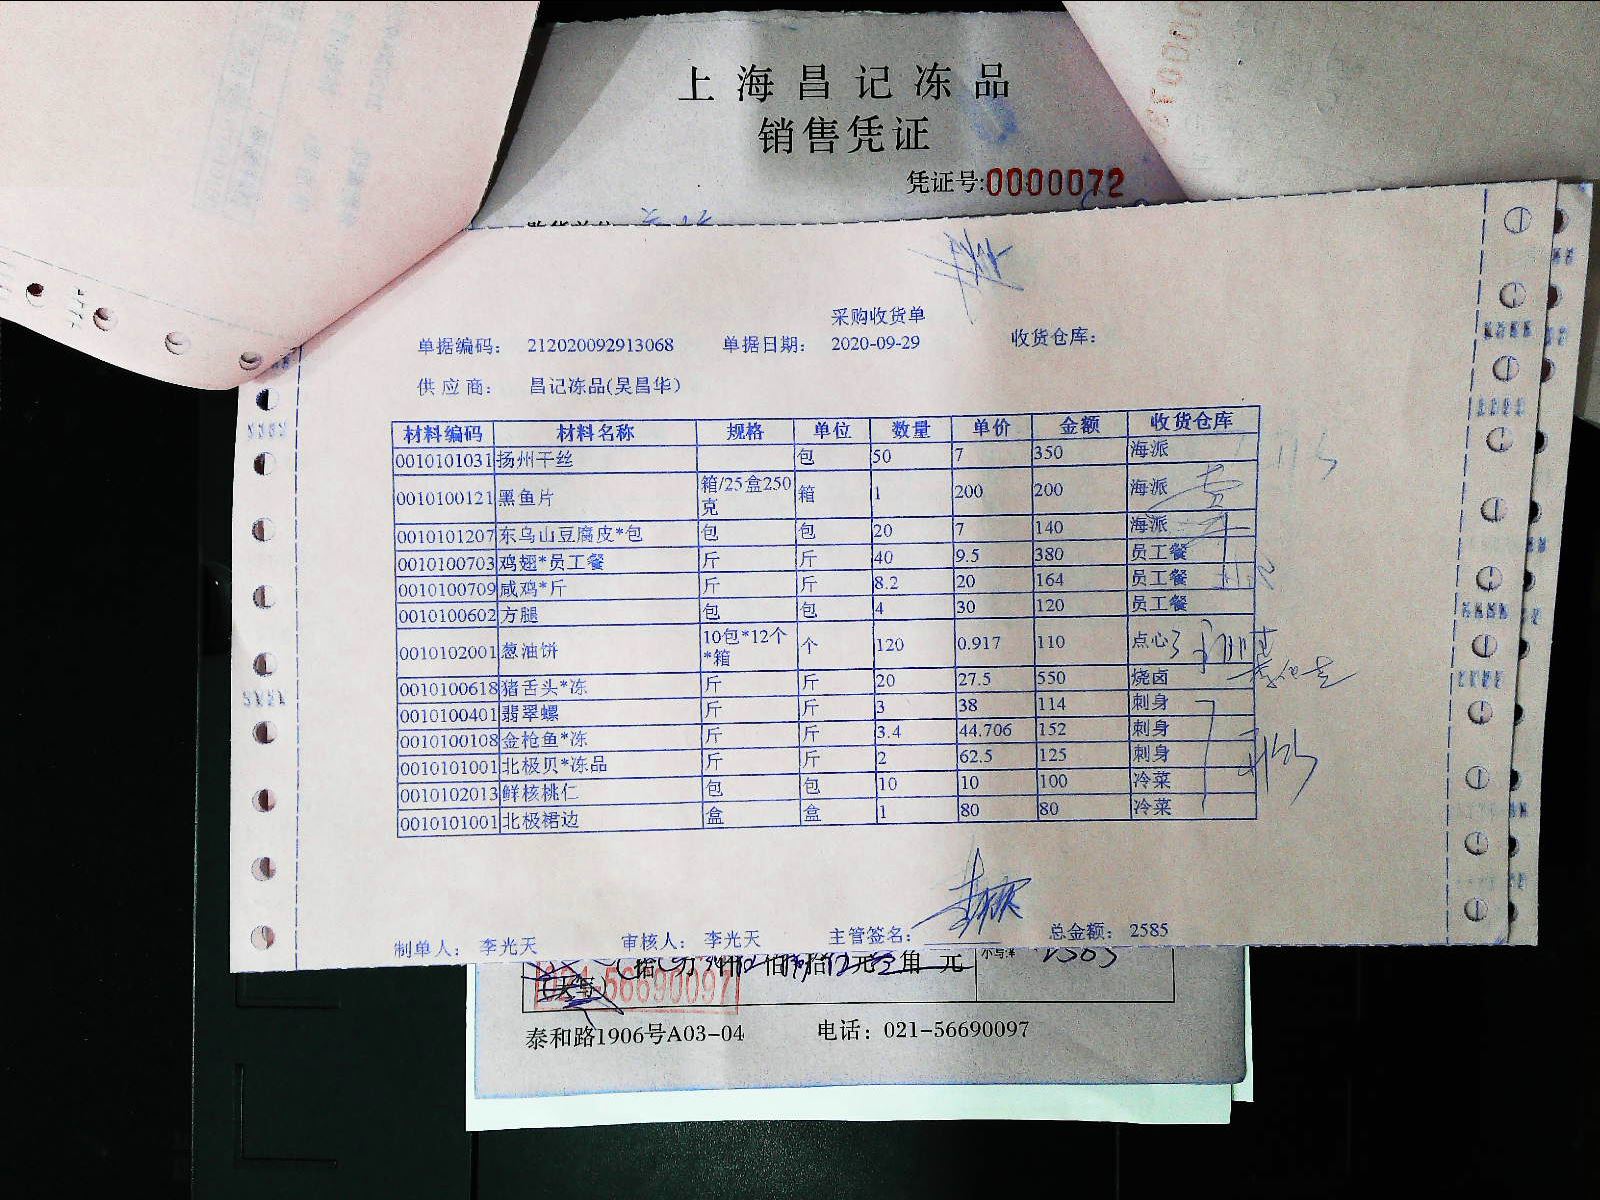 上海昌记冻品
销售凭证
凭证号:0000072
采购收货单
单据编码: 212020092913068 单据日期: 2020-09-29 收货仓库:
供应商: 昌记冻品(吴昌华)
材料编码 材料名称 规格 单位 数量 单价 金额 收货仓库
0010101031 扬州干丝 包 50 7 350 海派
0010100121 黑鱼片 箱/25盒250克 箱 1 200 200 海派
0010101207 东乌山豆腐皮*包 包 包 20 7 140 海派
0010100703 鸡翅*员工餐 斤 斤 40 9.5 380 员工餐
0010100709 咸鸡*斤 斤 斤 8.2 20 164 员工餐
0010100602 方腿 包 包 4 30 120 员工餐
0010102001 葱油饼 10包*12个*箱 个 120 0.917 110 点心
0010100618 猪舌头*冻 斤 斤 20 27.5 550 烧卤
0010100401 翡翠螺 斤 斤 3 38 114 刺身
0010100108 金枪鱼*冻 斤 斤 3.4 44.706 152 刺身
0010101001 北极贝*冻品 斤 斤 2 62.5 125 刺身
0010102013 鲜核桃仁 包 包 10 10 100 冷菜
0010101001 北极裙边 盒 盒 1 80 80 冷菜
制单人: 李光天 审核人: 李光天 主管签名: 总金额: 2585
(大写)
021-56690097
泰和路1906号A03-04 电话: 021-56690097